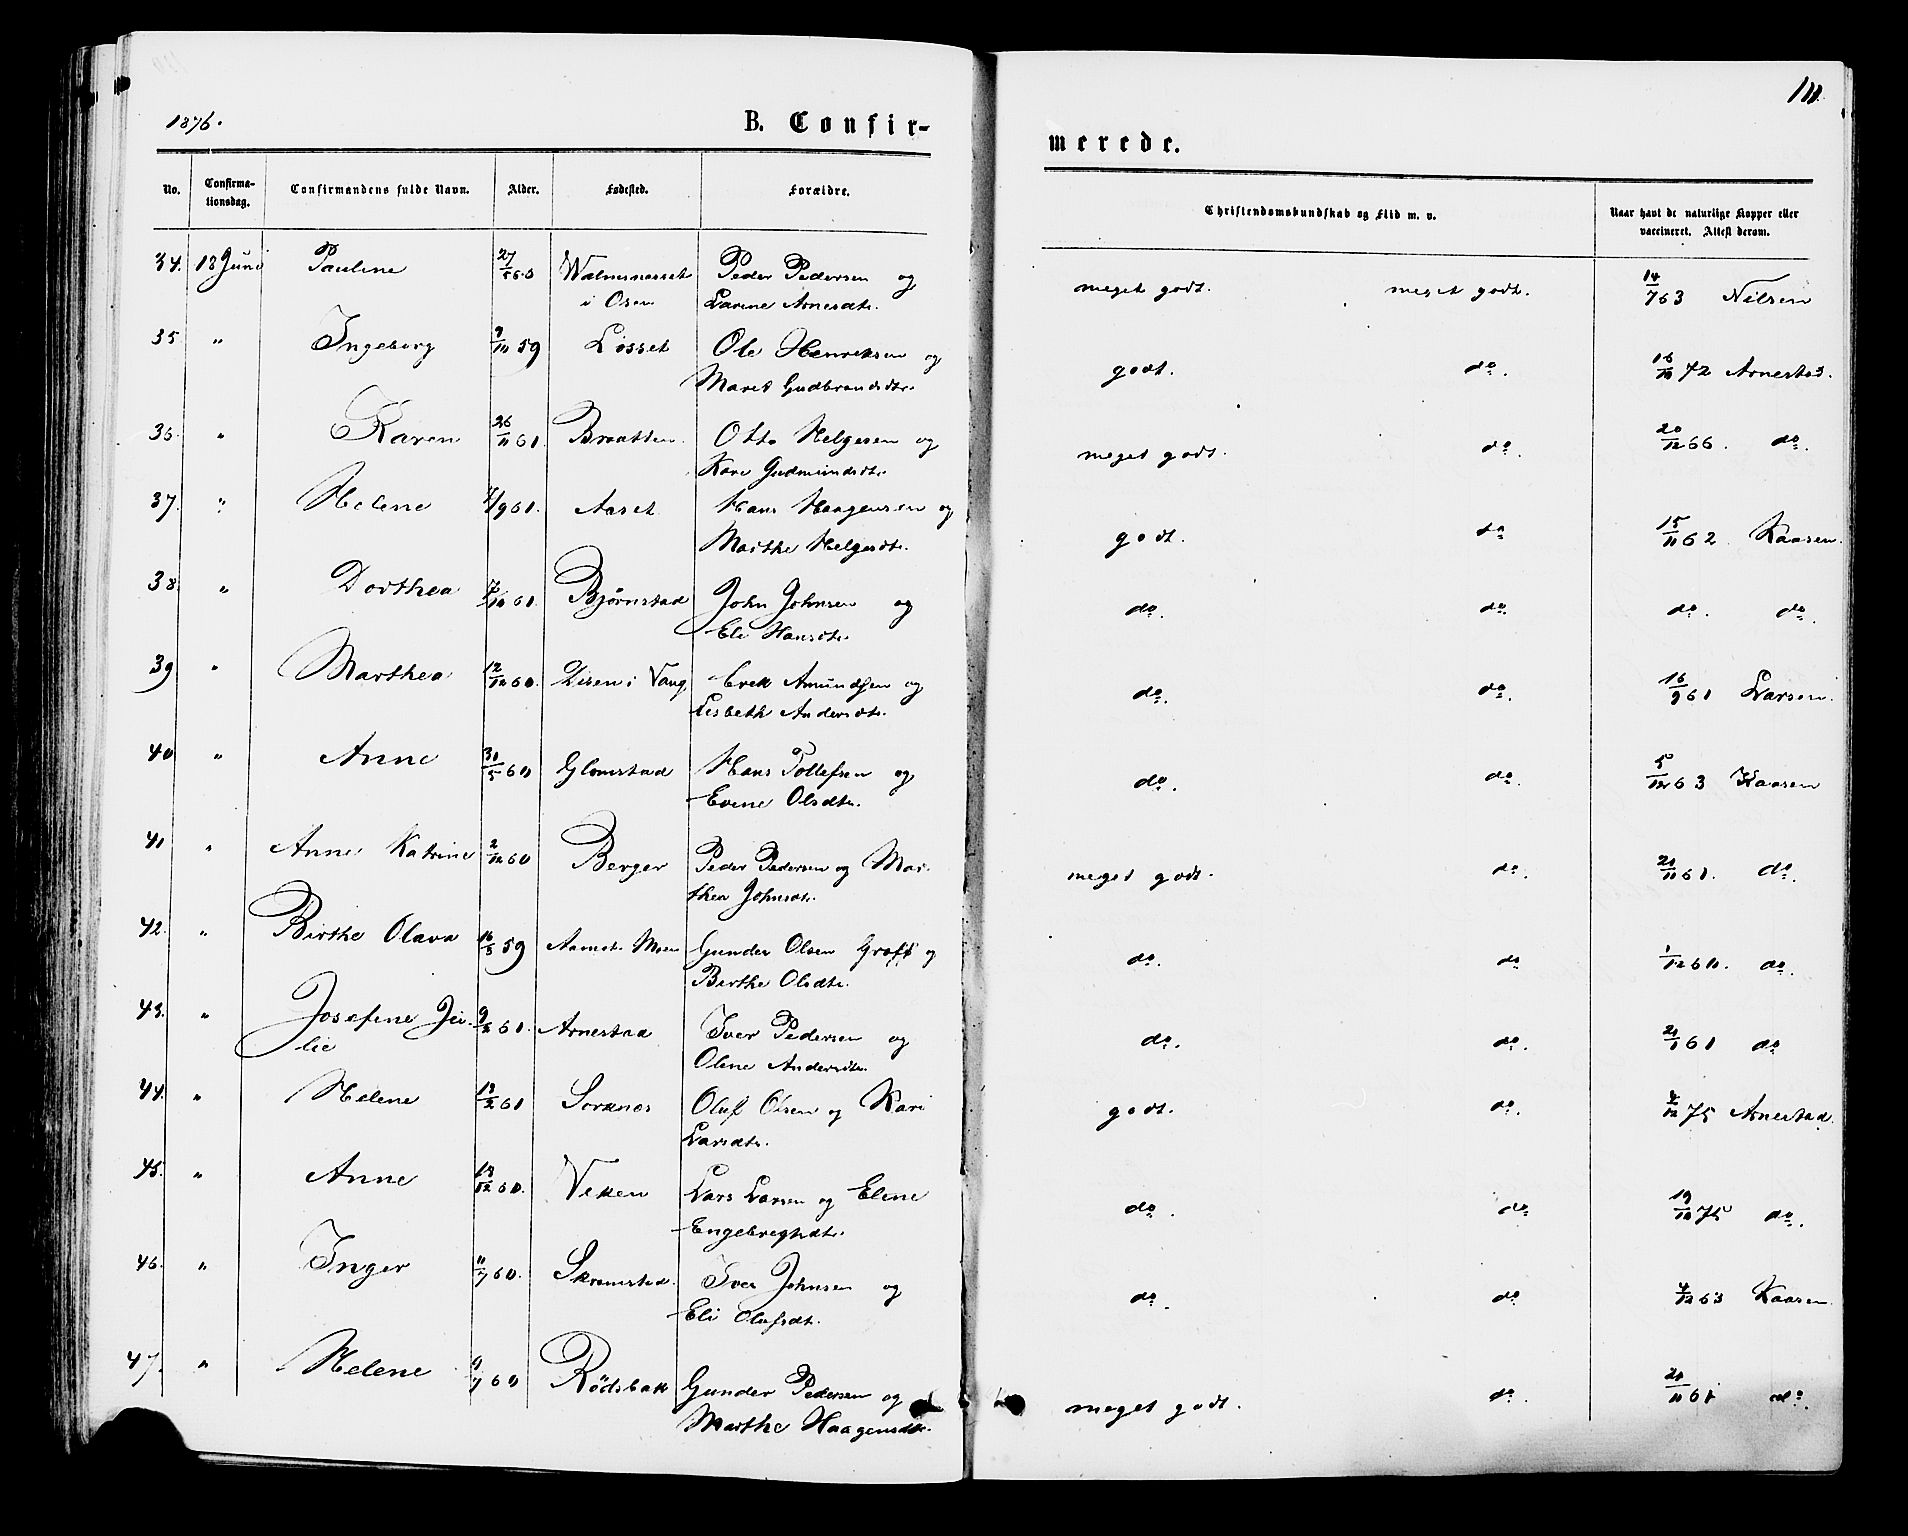 111
1876.
B. Confir-
merede.
No. Confirma-tionsdag. Confirmandens fulde Navn. Alder. Fødested. Forældre. Christendomskundskab og Flid m. v. Naar havt de naturlige Kopper eller vaccineret. Attest derom.
34. 18 Juni Pauline 27/ Peder Pedersen og meget godt. meget godt. 14/7 63 Nilsen
i Osen Larine Arnesdtr.
35 " Ingeborg 9/10 59 Losset Ole Henriksen og godt. do. 16/10 72 Arnestad.
Maret Gudbrandsdtr.
36. " Karen 26/11 61. Braatten. Otto Helgesen og meget godt. do. 20/12 66. do.
Kari Gudmundsdtr.
37. " Helene /9 61. Aaset Hans Haagensen og godt. do 15/11 62 Kaasen.
Marthe Helgesdtr.
38. " Dorthea 7/10 61. Bjørnstad John Johnsen og do. do. do. do.
Eli Hansdtr.
39 " Marthea 12/12 60. Disen i Vang Erek Amundsen og do. do. 16/9 61 Larsen.
Lisbeth Andersdtr.
40 " Anne 31/5 60 Glomstad Hans Tollefsen og do. do. 5/12 63 Kaasen
Evene Olsdtr.
41 " Anne Katrine 2/12 60 Berger Peder Pedersen og Mar- meget godt. do. 21/11 61. do.
thea Johnsdtr.
42. " Birthe Olava 16/5 59 Aamot Moen Gunder Olsen Grøft og do. do 1/12 60. do.
Birthe Olsdtr.
43. " Josefine Ju- 9/2 61. Arnestad Iver Pedersen og do. do. 21/ 61 do
lie Olene Andersdtr.
44. " Helene 13/2 61 Sorknes Oluf Olsen og Kari godt. do. /12 75 Arnestad.
Larsdtr.
45. " Anne 13/12 60. Veken Lars Larsen og Elene do. do 19/10 75 do.
Engebregtsdtr.
46. " Inger 11/7 60. Skramstad. Iver Johnsen og do. do 4/12 63 Kaasen.
Eli Olufsdt.
47. " Helene 9/7 60 Rødsbak Gunder Pedersen og meget godt. do. 21/11 61 do.
Marthe Haagensdtr.